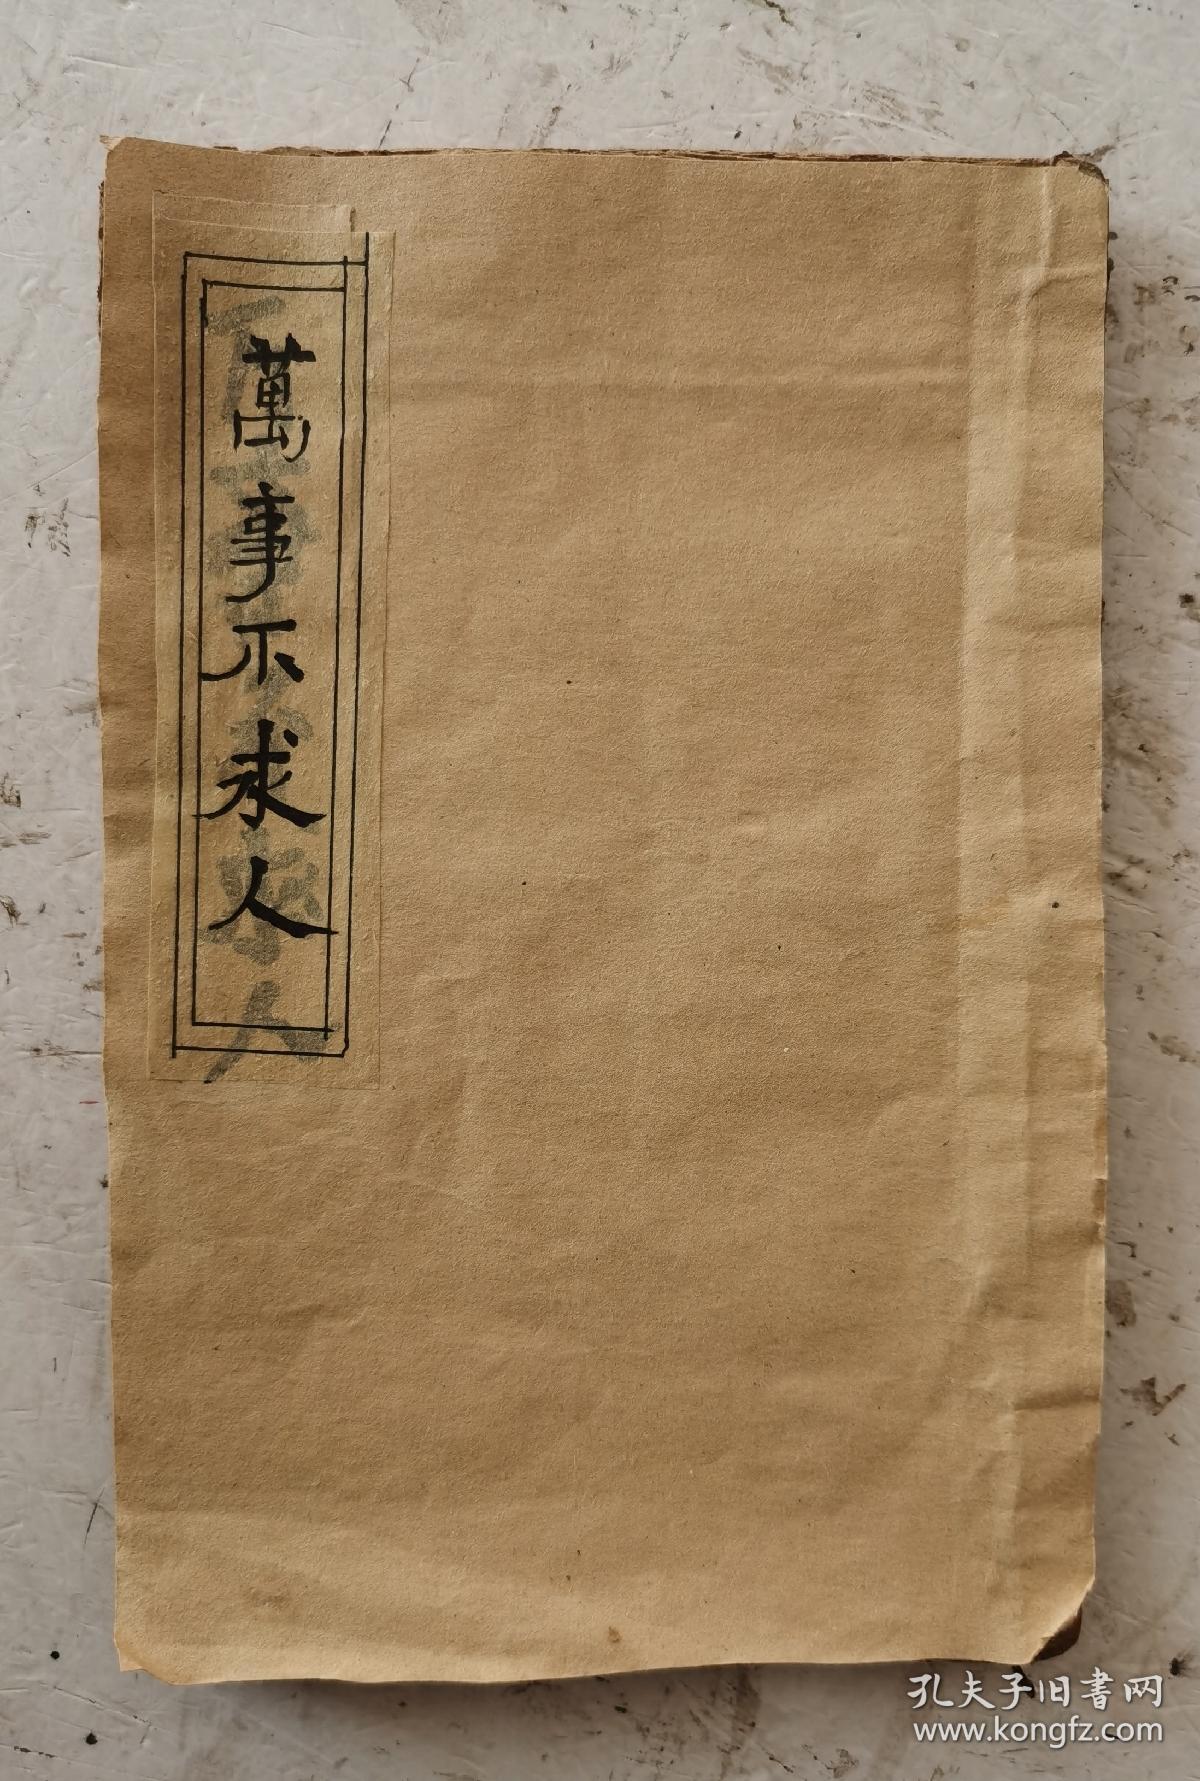 萬事不求人
孔夫子旧書网
www.kongfz.com